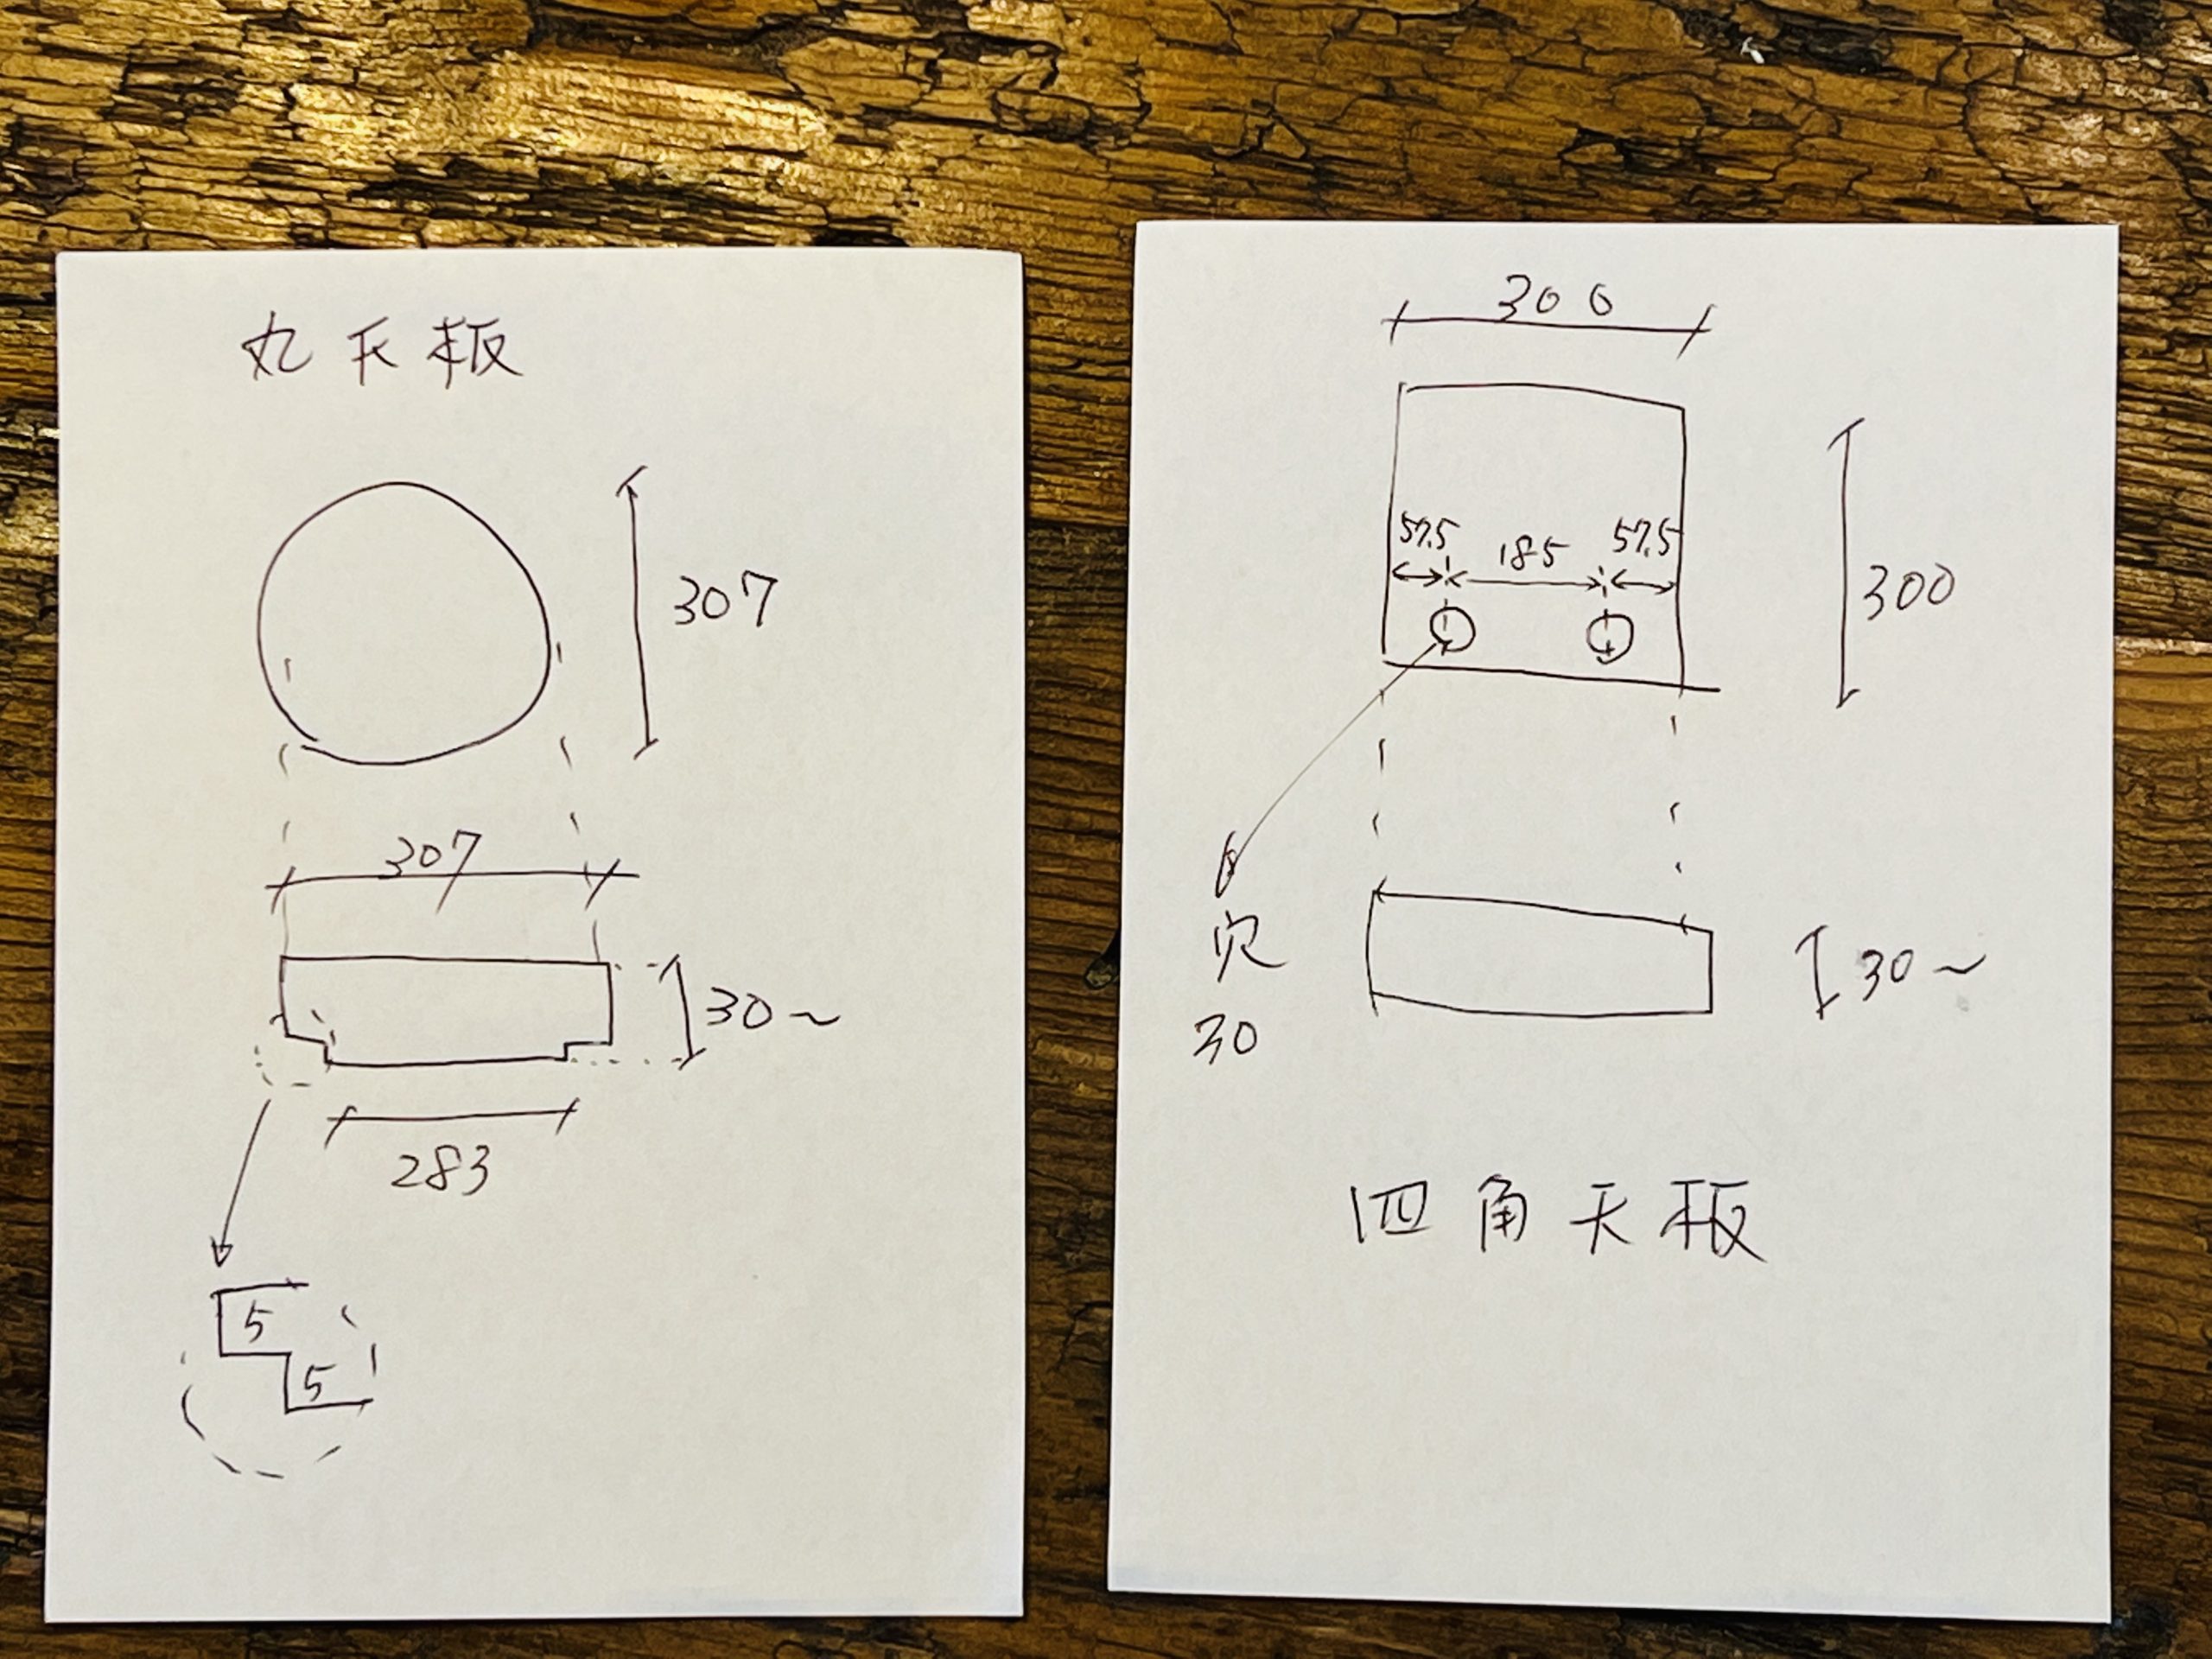 丸天板
307
307
30〜
283
5
5
300
57.5
185
57.5
300
穴
30
30〜
四角天板